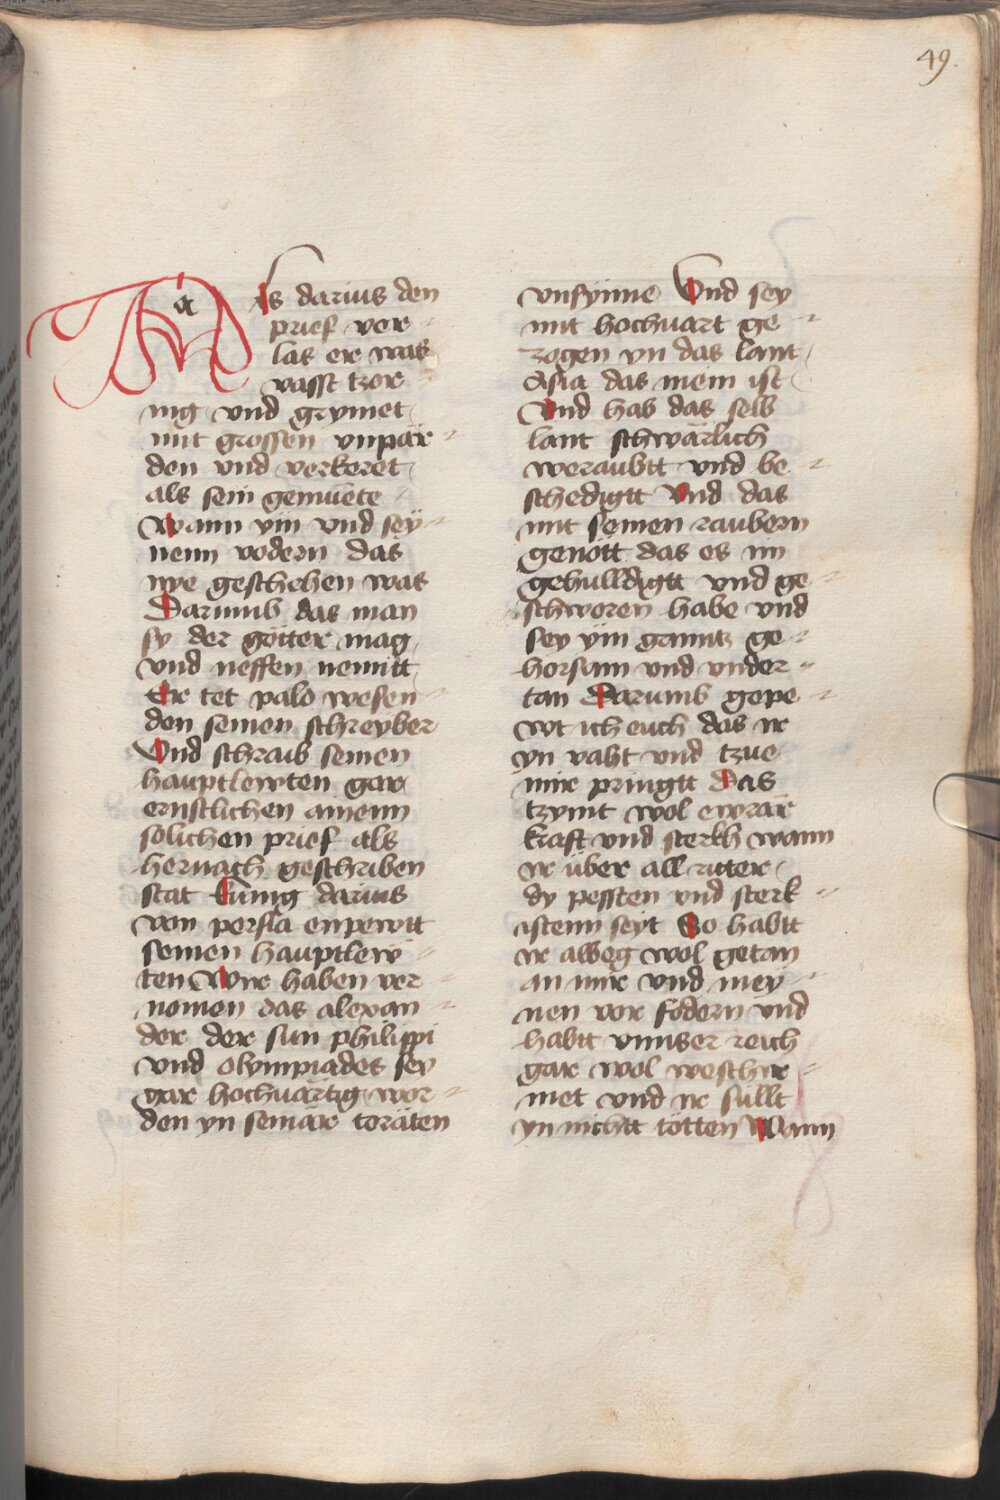 49.
Als darius den
prief ver
las er was
vasst tzor
nig vnd grymet
mit grossen vnpär
den vnd verkeret
als sein gemuete
Wann ym vnd sey
nenn vodern das
nye geschehen was
Darumb das man
sy der götter mag
vnd neffen nennitt
Er tet palo wesen
den seinen schreyber
Vnd schraib seinen
hauptlewten gar
ernstlichen ainenn
solichen prief als
hernach geschriben
stat kunig darius
von persia enpewtt
seinen hauptlew
ten Wir haben ver
nomen das alexan
der der sun philippi
vnd olympiades sey
gar hochuärtig wor
den yn seinär toräten
vnsynne Vnd sey
mit hochuart ge
zogen yn das lant
Asia das mein ist
Vnd hab das selb
lant schwärlich
weraubtt vnd be
schedigtt Vnd das
mit seinen raubern
genött das es im
gehulldigtt vnd ge
schworen habe vnd
sey ym ganntz ge
horsam vnd vnder
tan Darumb gepe
wt ich euch das ir
yn vaht vnd tzue
mir pringtt Das
tzymt wol ewrär
kraft vnd sterkh wann
ir über all ritter
dy pessten vnd sterk
istenn seyt So habtt
ir alweg wol getan
an mir vnd mey
nen vor fodern vnd
habtt vnnser reich
gar wol weschir
met vnd ir süllt
yn nichtt tötten Wann